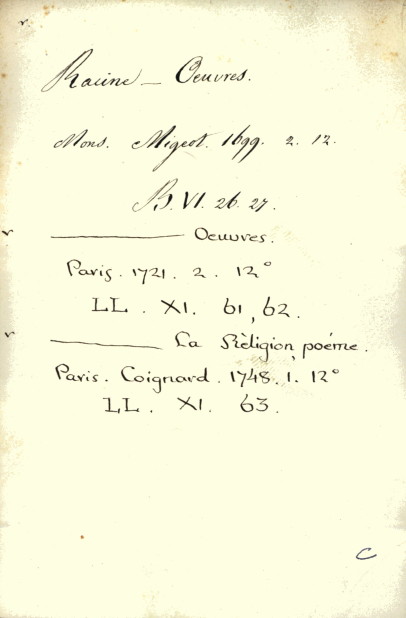 Racine — Oeuvres.
Mons. Migeot. 1699. 2. 12.
B. VI. 26. 27.
——— Oeuvres.
Paris. 1721. 2. 12°
LL. XI. 61, 62.
——— La Rèligion, poéme.
Paris. Coignard. 1748. 1. 12°
LL. XI. 63.
C